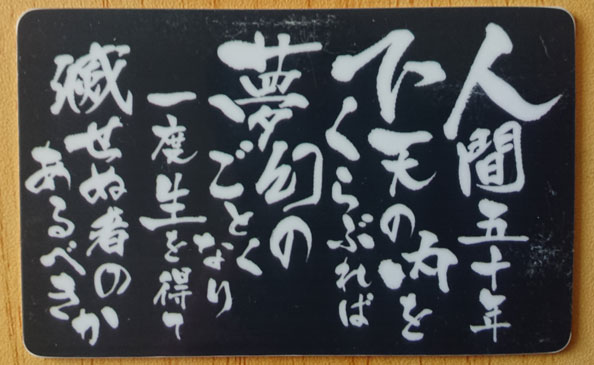 人間五十年
下天の内を
くらぶれば
夢幻の
ごとくなり
一度生を得て
滅せぬ者の
あるべきか